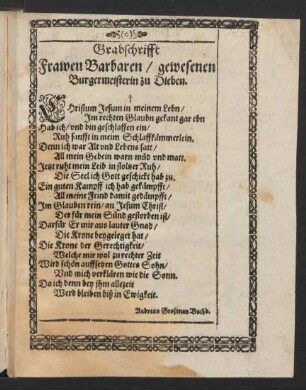 Grabschrifft
Frawen Barbaren / gewesenen
Burgermeisterin zu Dieben.
CHristum Jesum in meinem Lebn /
Im rechten Glaubn gekant gar ebn
Hab ich / vnd bin geschlaffen ein /
Ruh sanfft in meim Schlaffkämmerlein.
Denn ich war Alt vnd Lebens satt /
All mein Gebein warn müd vnd matt.
Jetzt ruht mein Leib in stolzer Ruh /
Die Seel ich Gott geschickt hab zu.
Ein guten Kampff ich hab gekämpfft /
All meine Feind damit gedämpfft /
Im Glauben rein / an Jesum Christ /
Der für mein Sünd gestorben ist /
Darfür Er mir aus lauter Gnad /
Die Krone beygeleget hat /
Die Krone der Gerechtigkeit /
Welche mir wol zu rechter Zeit
Wird schön auffsetzen Gottes Sohn /
Vnd mich verklären wie die Sonn.
Da ich denn bey jhm allezeit
Werd bleiben biß in Ewigkeit.
Andreas Grosman Buchb.